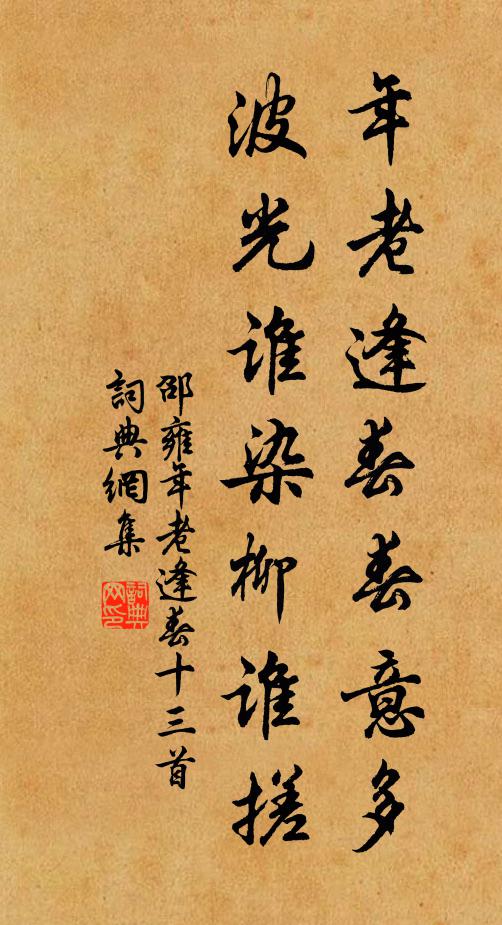 年老逢春春意多
波光誰染柳誰搓
邵雍年老逢春十三首
詞典網集
詞典網印